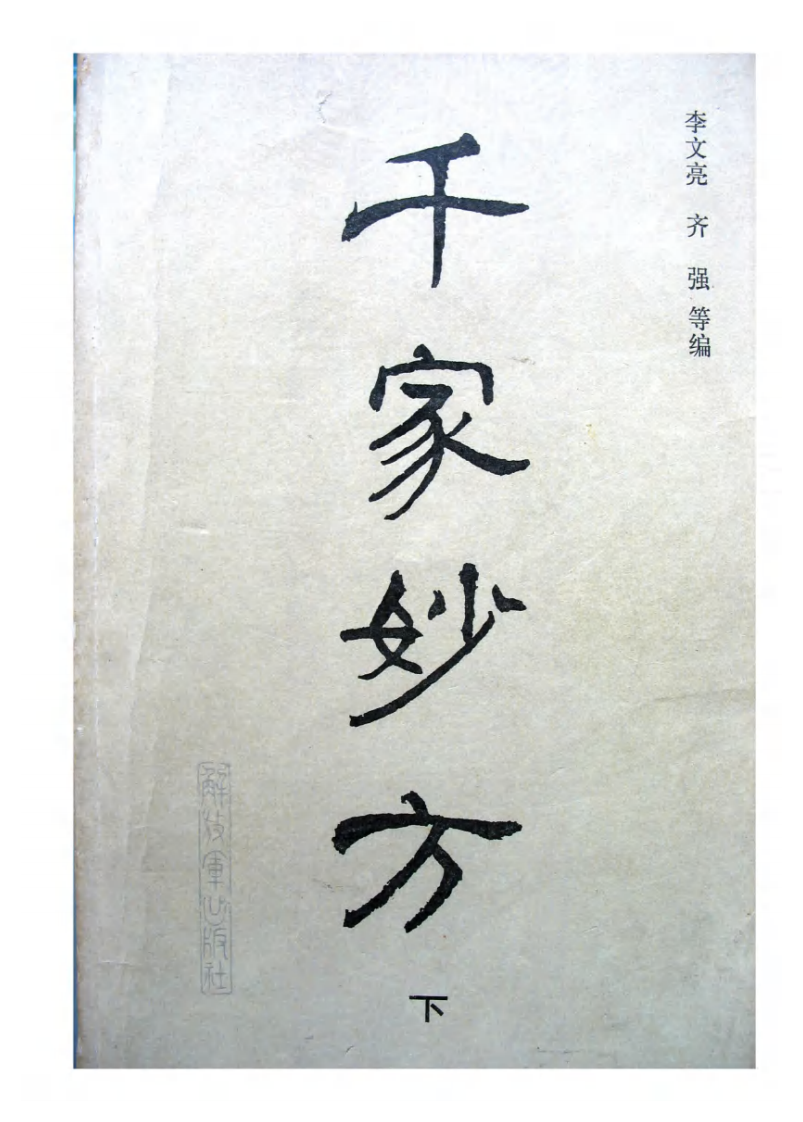 李文亮 齐 强 等编
千家妙方
下
解放军出版社